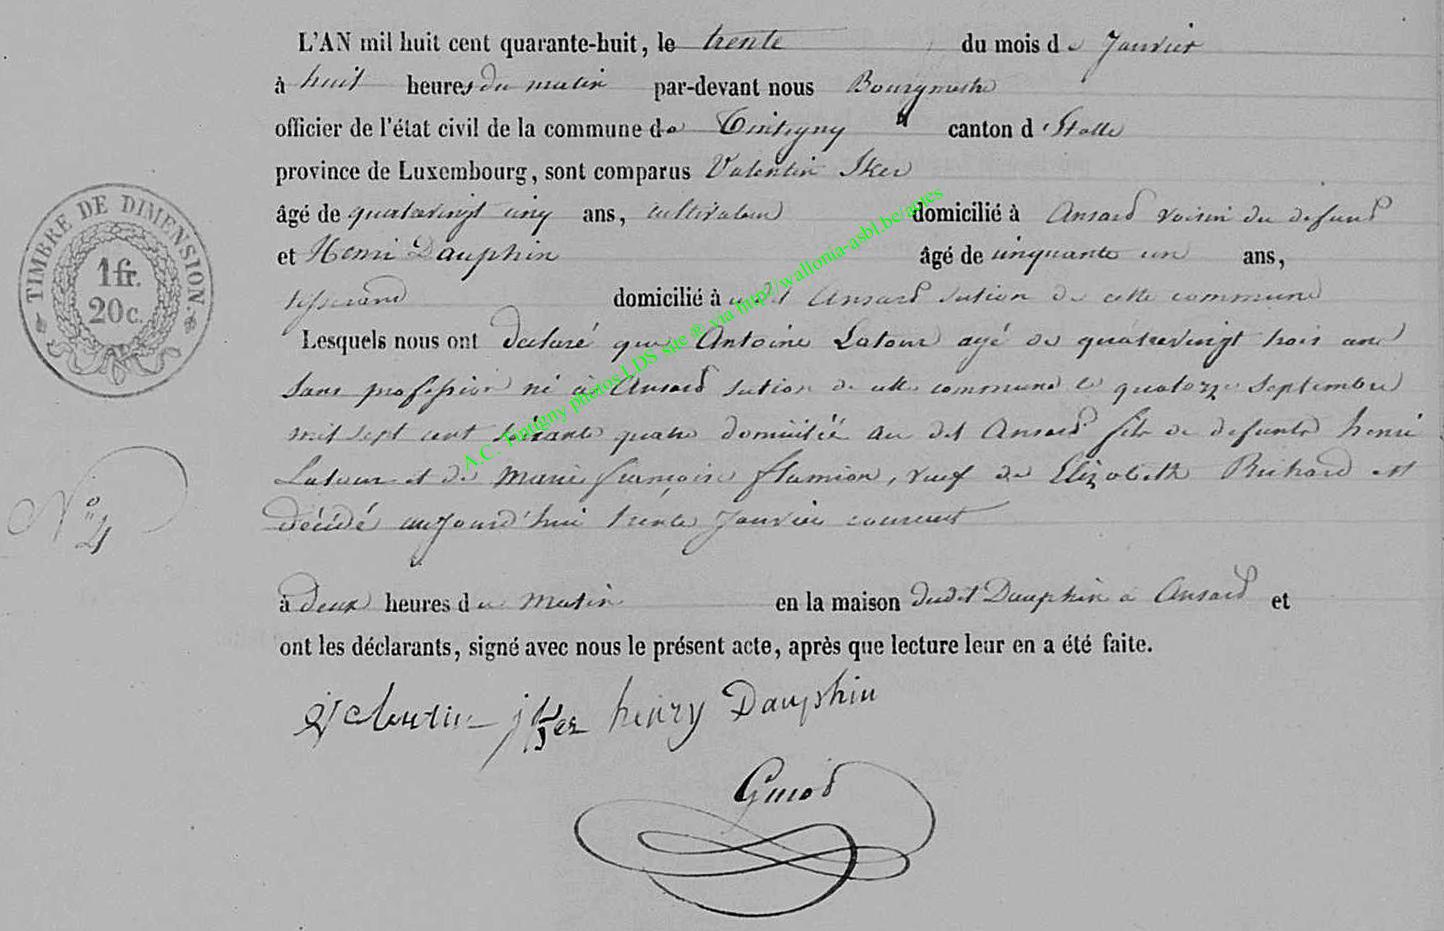 L'AN mil huit cent quarante-huit, le trente du mois de Janvier
à huit heures du matin par-devant nous Bourgmestre
officier de l'état civil de la commune de Tintigny canton d'Etalle
province de Luxembourg, sont comparus Valentin Iker
âgé de quatrevingt cinq ans, cultivateur domicilié à Ansard voisin du defunt
et Henri Dauphin âgé de cinquante un ans,
tisserand domicilié à Ansard section de cette commune
Lesquels nous ont declaré que Antoine Latour agé de quatrevingt trois ans
sans profession né à Ansard section de cette commune le quatorze Septembre
mil sept cent soixante quatre domicilié au dit Ansard fils de defunts henri
Latour et de Marie françoise flamion, veuf de Elizabeth Richard est
décédé aujourd'hui trente Janvier courant
à deux heures du matin en la maison dudit Dauphin à Ansard et
ont les déclarants, signé avec nous le présent acte, après que lecture leur en a été faite.
Valentin henry Dauphin
TIMBRE DE DIMENSION.
1 fr.
20 c.
N° 4
A.C. Tintigny photos LDS site ® via http://wallonia-asbl.be/actes